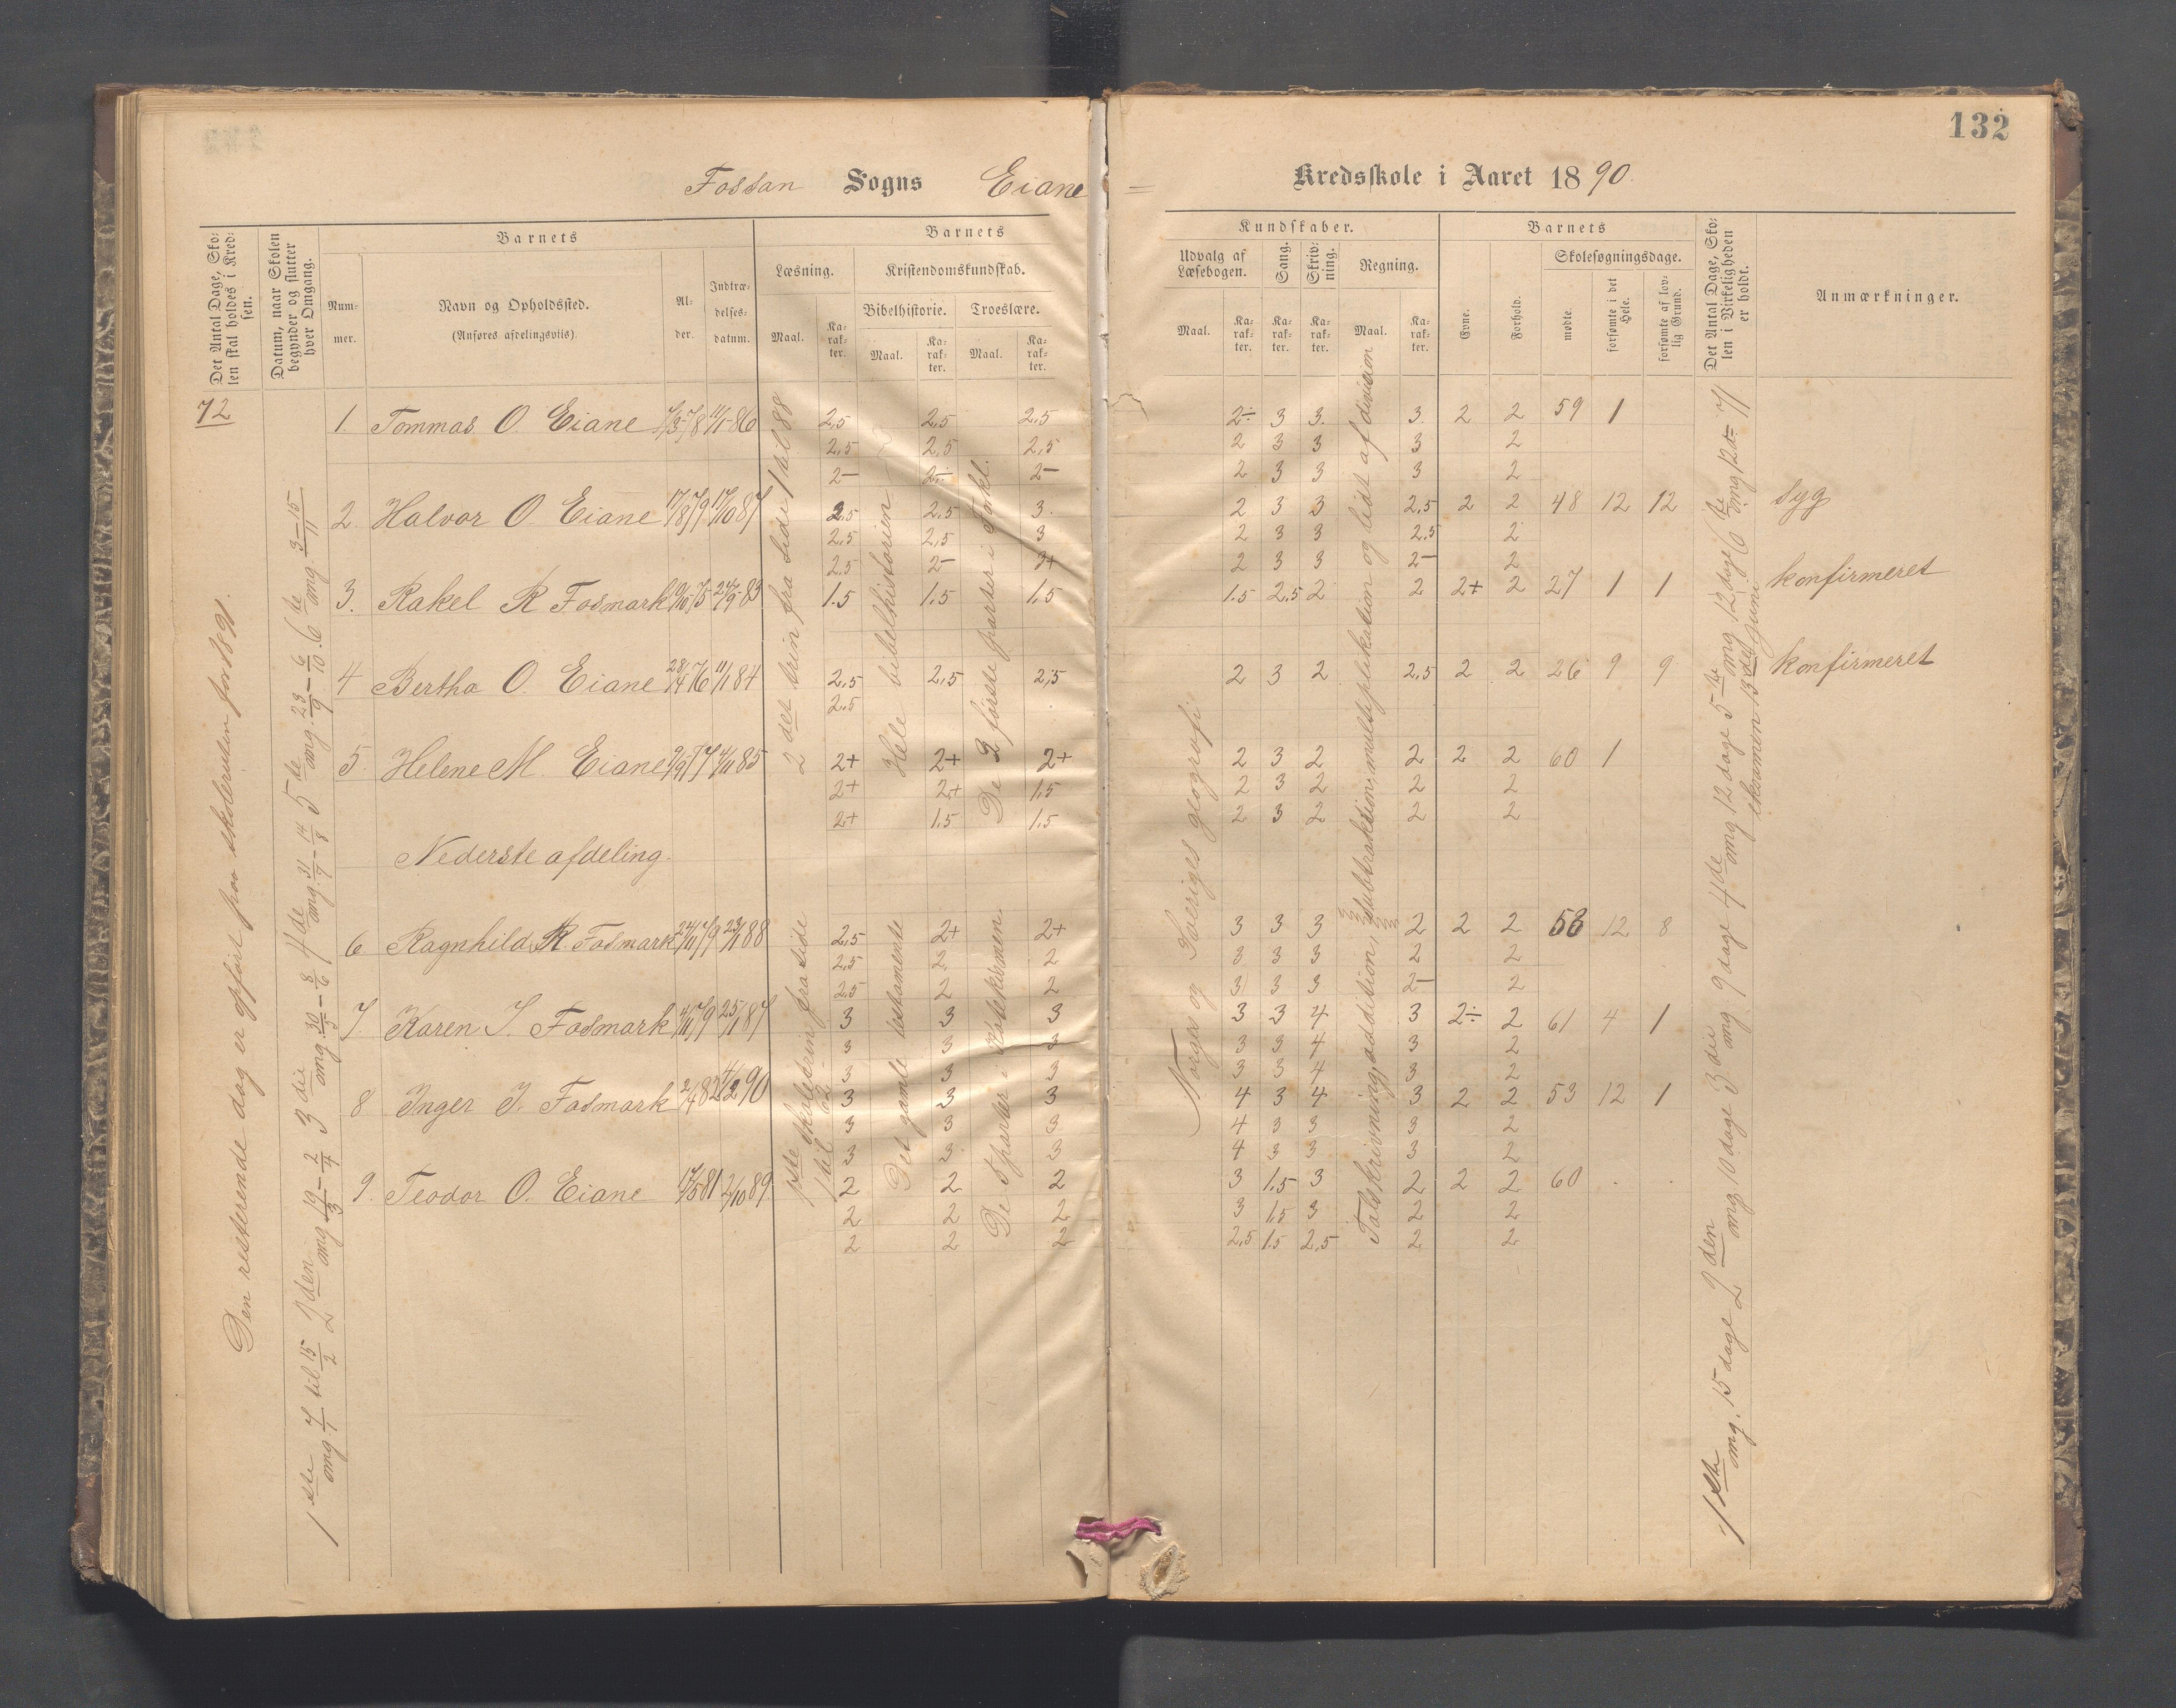 132
Fossan Sogns Eiane
Kredsskole i Aaret 1890.
Det Antal Dage, Sko-
len skal holdes i Kred-
sen.
Datum, naar Skolen
begynder og slutter
hver Omgang.
Barnets
Num-
mer.
Navn og Opholdssted.
(Anføres afdelingsvis).
Al-
der.
Indtræ-
delses-
datum.
Barnets
Læsning.
Maal.
Ka-
rak-
ter.
Kristendomskundskab.
Bibelhistorie.
Maal.
Ka-
rak-
ter.
Troeslære.
Maal.
Ka-
rak-
ter.
Kundskaber.
Udvalg af
Læsebogen.
Maal.
Ka-
rak-
ter.
Sang.
Ka-
rak-
ter.
Skriv-
ning.
Ka-
rak-
ter.
Regning.
Maal.
Ka-
rak-
ter.
Barnets
Evne.
Forhold.
Skolesøgningsdage.
mødte.
forsømte i det
Hele.
forsømte af lov-
lig Grund.
Det Antal Dage, Sko-
len i Virkeligheden
er holdt.
Anmærkninger.
72
Den resterende dag er opført paa skoleruten for 1891.
1 ste omg. 7/1 til 15/2 2 den omg 19/3 - 2/4 3 die omg. 30/5 - 8/6 4 de omg. 31/7 - 14/8 5 de omg. 23/9 - 6/10. 6 te omg. 3 - 15/11
1. Tommas O. Eiane 11/1 86 2,5 2,5 2,5 2÷ 3 3. 3. 2 2 59 1
2,5 2,5 2,5 2 3 3 3 2
2- 2- 2- 2 3 3 3 2
2. Halvor O. Eiane 17/8 79 17/10 87 2.5 2.5 3. 2 3 3 2,5 2 2 48 12 12 syg
2.5 2,5 3 2 3 3 2.5 2
2.5 2- 3+ 2 3 3 2- 2
3. Rakel R Fosmark 24/9 83 1.5 1.5 1,5 1.5 2.5 2 2 2+ 2 27 1 1 konfirmeret
4 Bertha O. Eiane 28/4 76 11/1 84 2,5 2,5 2,5 2 3 2 2,5 2 2 26 9 9 konfirmeret
2.5
5. Helene M. Eiane 4/11 85 2+ 2+ 2+ 2 3 2 2 2 2 60 1
2+ 2+ 1,5 2 3 2 2 2
2+ 1.5 1,5 2 3 2 2 2
Nederste afdeling.
6 Ragnhild R. Fosmark 24/11 79 23/1 88 2,5 2+ 2+ 3 3 3 2 2 2 58 12 8
2,5 2 2 3 3 3 2 2
2.5 2 2 3 3 3 2- 2
7 Karen J. Fosmark 4/11 79 25/1 87 3 3 3 3 3 4 3 2÷ 2 61 4 1
3 3 3 3 3 4 3 2
3 3 3 3 3 4 3 2
8 Inger J. Fosmark 2/4 82 3 3 3 4 3 4 3 2 2 53 12 1
3 3 3 4 3 3 3 2
3 3 3 4 3 3 3 2
9. Teodor O. Eiane 17/5 81 2/10 89 2 2 2 3 1,5 3 2 2 2 60 . .
2 2 2 3 1,5 3 2 2
2 2 2 2,5 1.5 2,5 2 2
2 det trin fra side 1 til 88
Hele bibelhistorien
De 2 første parter i Forkl.
1ste skoletrin fra side 1 til 62
Det gamle testamente
De 5 parter i Katekismen.
Norges og Sveriges geografi
Talskrivning, addition, subtraktion, multiplikation og lidt af division
1ste omg. 15 dage 2 den omg. 10 dage 3 die omg 9 dage 4 de omg 12 dage 5 te omg 12 dage 6 te omg 12 d.= 71
eksamen 13 de juni.